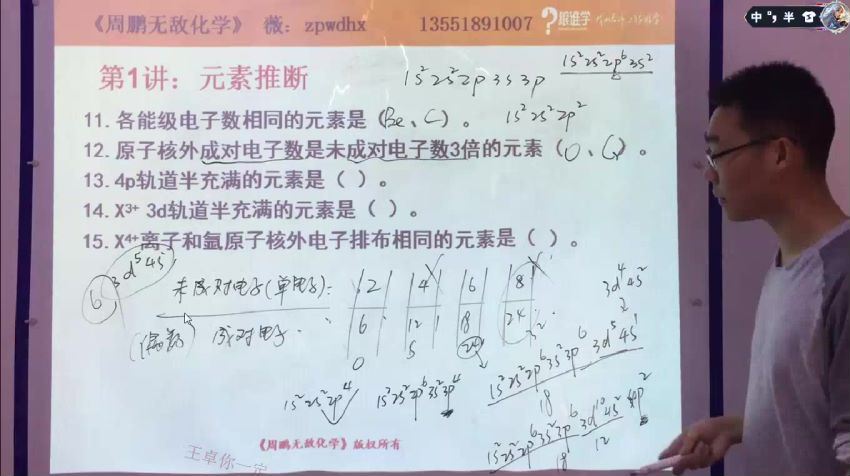 《周鹏无敌化学》 薇：zpwdhx 13551891007 跟谁学
中 半
第1讲：元素推断
1s² 2s² 2p 3s 3p
1s² 2s² 2p⁶ 3s²
11. 各能级电子数相同的元素是（Be、C）。 1s² 2s² 2p²
12. 原子核外成对电子数是未成对电子数3倍的元素（O、 ）。
13. 4p轨道半充满的元素是（ ）。
14. X³⁺ 3d轨道半充满的元素是（ ）。
15. X⁴⁺离子和氩原子核外电子排布相同的元素是（ ）。
6, 3d⁵4s¹
未成对电子(单电子): 2 4 6 8
(偶数) 成对电子: 6 12 18 24
O S
3d⁴4s²
1s² 2s² 2p⁴ 1s² 2s² 2p⁶ 3s² 3p⁴
1s² 2s² 2p⁶ 3s² 3p⁶ 3d⁵ 4s¹
18
1s² 2s² 2p⁶ 3s² 3p⁶ 3d¹⁰ 4s² 4p²
18 12
王卓你一定
《周鹏无敌化学》版权所有